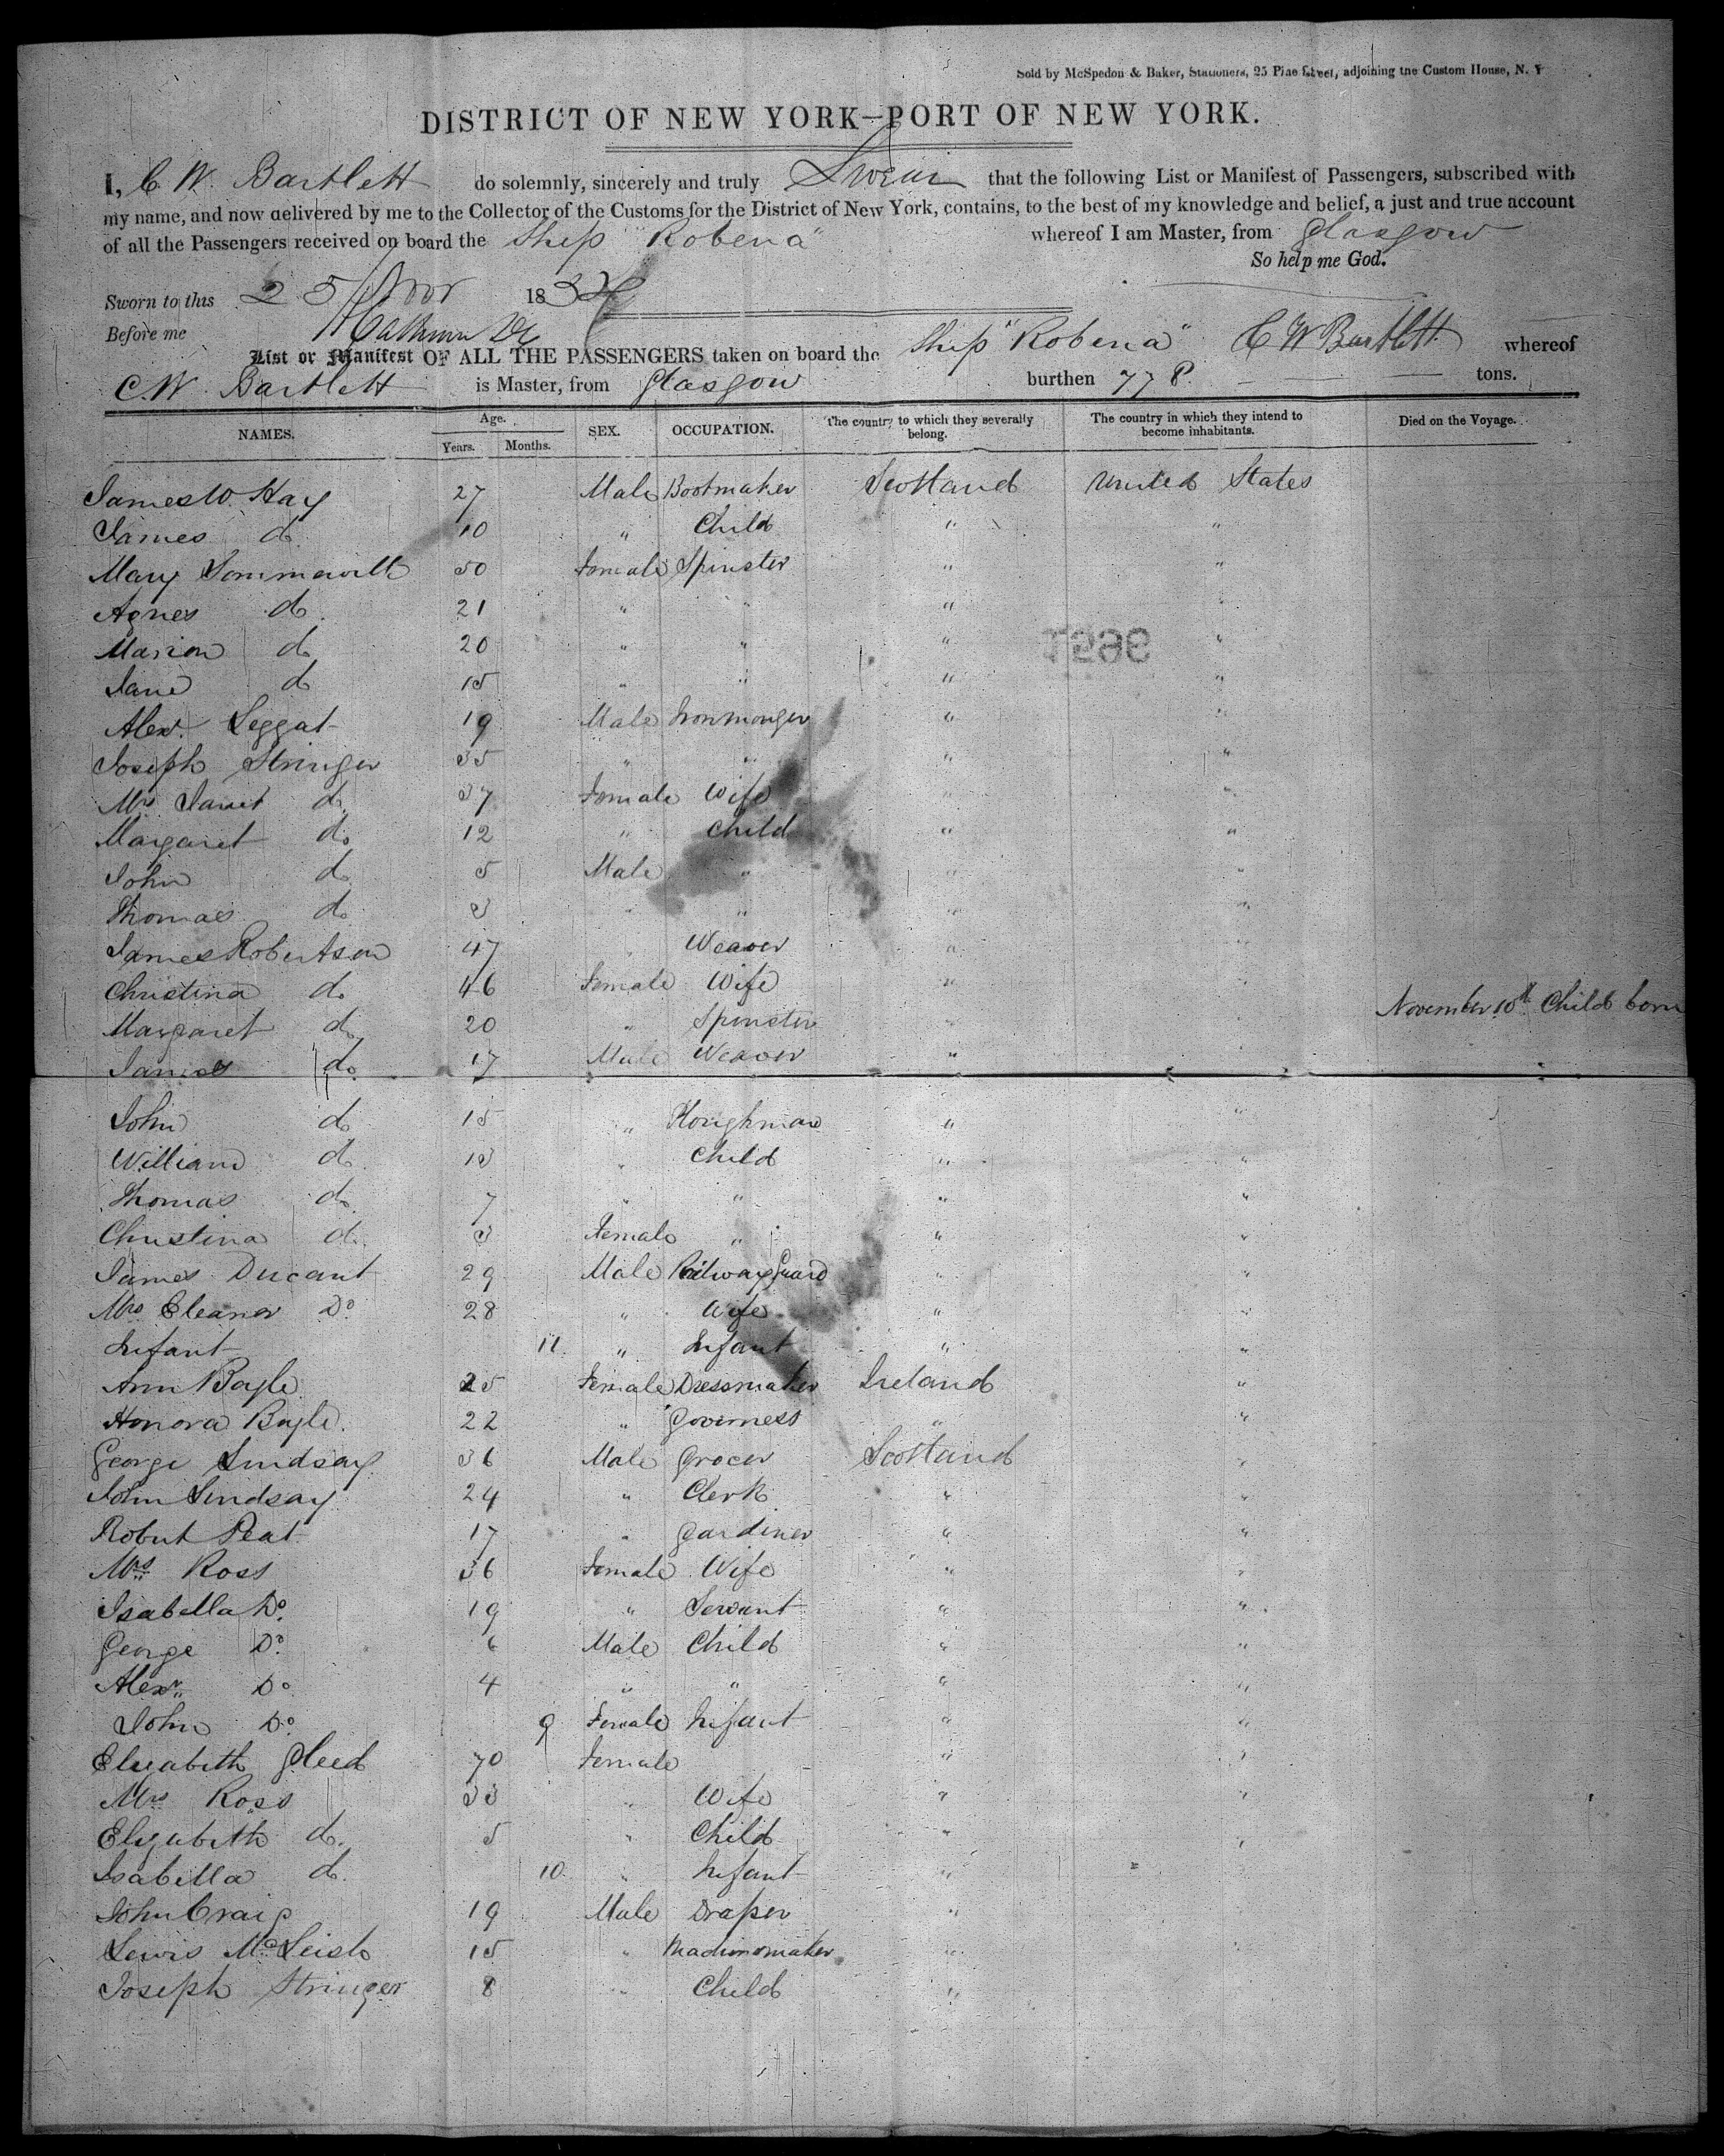 Sold by McSpedon & Baker, Stationers, 25 Pine Street, adjoining the Custom House, N. Y
DISTRICT OF NEW YORK—PORT OF NEW YORK.
I, C. W. Bartlett do solemnly, sincerely and truly Swear that the following List or Manifest of Passengers, subscribed with
my name, and now delivered by me to the Collector of the Customs for the District of New York, contains, to the best of my knowledge and belief, a just and true account
of all the Passengers received on board the Ship "Robena" whereof I am Master, from Glasgow
So help me God.
Sworn to this 25 Nov 185
Before me
List or Manifest OF ALL THE PASSENGERS taken on board the Ship "Robena" C W Bartlett whereof
C. W. Bartlett is Master, from Glasgow burthen 778 tons.
NAMES. Age. Years. Months. SEX. OCCUPATION. The country to which they severally belong. The country in which they intend to become inhabitants. Died on the Voyage.
James W. Hay 27 Male Bootmaker Scotland United States
James do 10 " Child " "
Mary Sommervill 50 Female Spinster " "
Agnes do 21 " " " "
Marion do 20 " " " "
Jane do 15 " " " "
Alexr. Leggat 19 Male Ironmonger " "
Joseph Stringer 35 " " " "
Mrs Janet do 37 Female Wife " "
Margaret do 12 " Child " "
John do 5 Male " " "
Thomas do 3 " " " "
James Robertson 47 " Weaver " "
Christina do 46 Female Wife " " November 10th Child born
Margaret do 20 " Spinster " "
James do 17 Male Weaver " "
John do 15 " Ploughman " "
William do 13 " Child " "
Thomas do 7 " " " "
Christina do 3 Female " " "
James Ducant 29 Male Railway Guard " "
Mrs Eleanor Do 28 " Wife " "
Infant 11 " Infant " "
Ann Boyle 25 Female Dressmaker Ireland "
Honora Boyle 22 " Governess " "
George Lindsay 36 Male Grocer Scotland "
John Lindsay 24 " Clerk " "
Robert Peat 17 " Gardiner " "
Mrs Ross 36 Female Wife " "
Isabella Do 19 " Servant " "
George Do 6 Male Child " "
Alexr Do 4 " " " "
John Do 9 Female Infant " "
Elizabeth Gleed 70 Female " "
Mrs Ross 33 " Wife " "
Elizabeth do 5 " Child " "
Isabella do 10 " Infant "
John Craig 19 Male Draper "
Lewis McLeish 15 " Machinemaker "
Joseph Stringer 8 " Child "